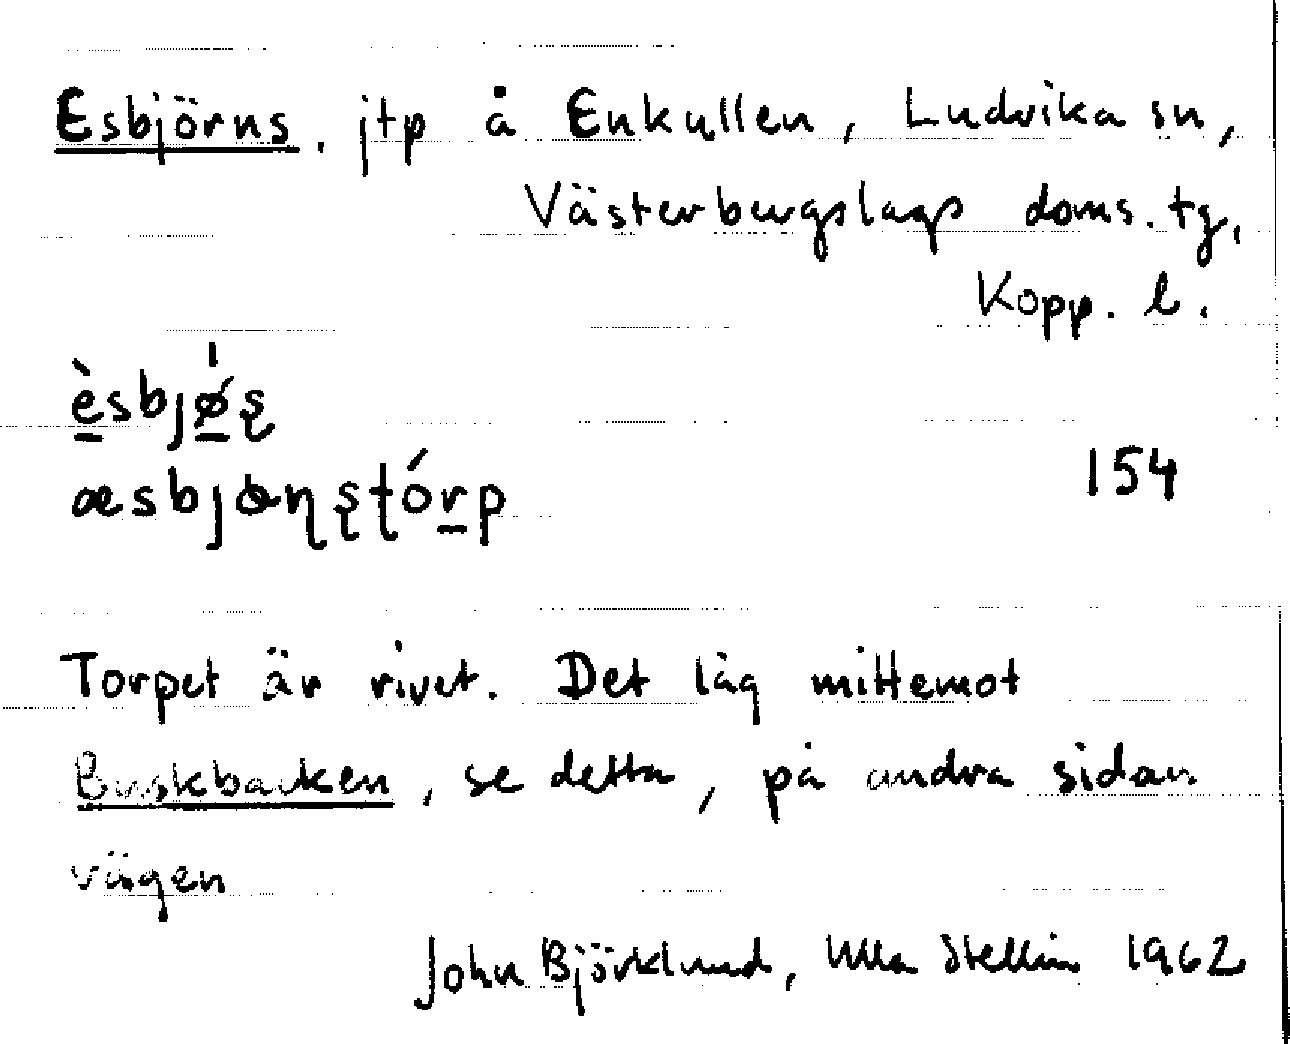 Esbjörns. jtp å Enkullen, Ludvika sn,
Västerbergslags doms. tg,
Kopp. l.
èsbjǿʂ
æsbjɵɳʂʈórp
154
Torpet är rivet. Det låg mittemot
Buskbacken, se detta, på andra sidan
vägen
John Björklund, Ulla Stellin 1962